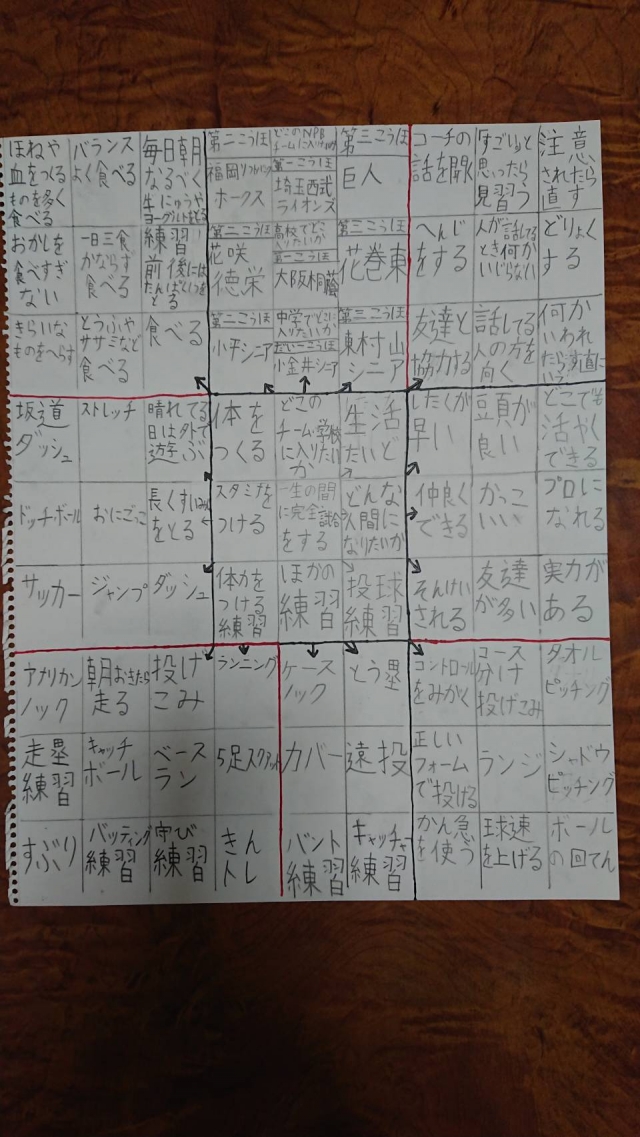 ほねや
血をつくる
ものを多く
食べる
バランス
よく食べる
毎日朝
なるべく
牛にゅうや
ヨーグルトをとる
第二こうほ
福岡ソフトバンク
ホークス
どこのNPB
チームに入りたいか
第一こうほ
埼玉西武
ライオンズ
第三こうほ
巨人
コーチの
話を聞く
すごいなと
思ったら
見習う
注意
されたら
直す
おかしを
食べすぎ
ない
一日三食
かならず
食べる
練習
前後には
たんぱくしつを
とる
第二こうほ
花咲
徳栄
高校でどこ
入りたいか
第一こうほ
大阪桐蔭
第三こうほ
花巻東
へんじ
をする
人が話してる
とき何か
いじらない
どりょく
する
きらいな
ものをへらす
とうふや
ササミなど
食べる
食べる
第二こうほ
小平シニア
中学でどこに
入りたいか
だい一こうほ
小金井シニア
第三こうほ
東村山
シニア
友達と
協力する
話してる
人の方を
向く
何か
いわれ
たら素直に
坂道
ダッシュ
ストレッチ
晴れてる
日は外で
遊ぶ
体を
つくる
どこの
チーム・学校
に入りたい
か
生活
たいど
したくが
早い
頭が
良い
どこでも
活やく
できる
ドッチボール
おにごっこ
長くすいみん
をとる
スタミナを
つける
一生の間
に完全試合
をする
どんな
人間に
なりたいか
仲良く
できる
かっこ
いい
プロに
なれる
サッカー
ジャンプ
ダッシュ
体力を
つける
練習
ほかの
練習
投球
練習
そんけい
される
友達
が多い
実力が
ある
アメリカン
ノック
朝おきたら
走る
投げ
こみ
ランニング
ケース
ノック
とう塁
コントロール
をみがく
コース
分け
投げこみ
タオル
ピッチング
走塁
練習
キャッチ
ボール
ベース
ラン
5足スクワット
カバー
遠投
正しい
フォーム
で投げる
ランジ
シャドウ
ピッチング
すぶり
バッティング
練習
守び
練習
きん
トレ
バント
練習
キャッチャー
練習
かん急
を使う
球速
を上げる
ボール
の回てん